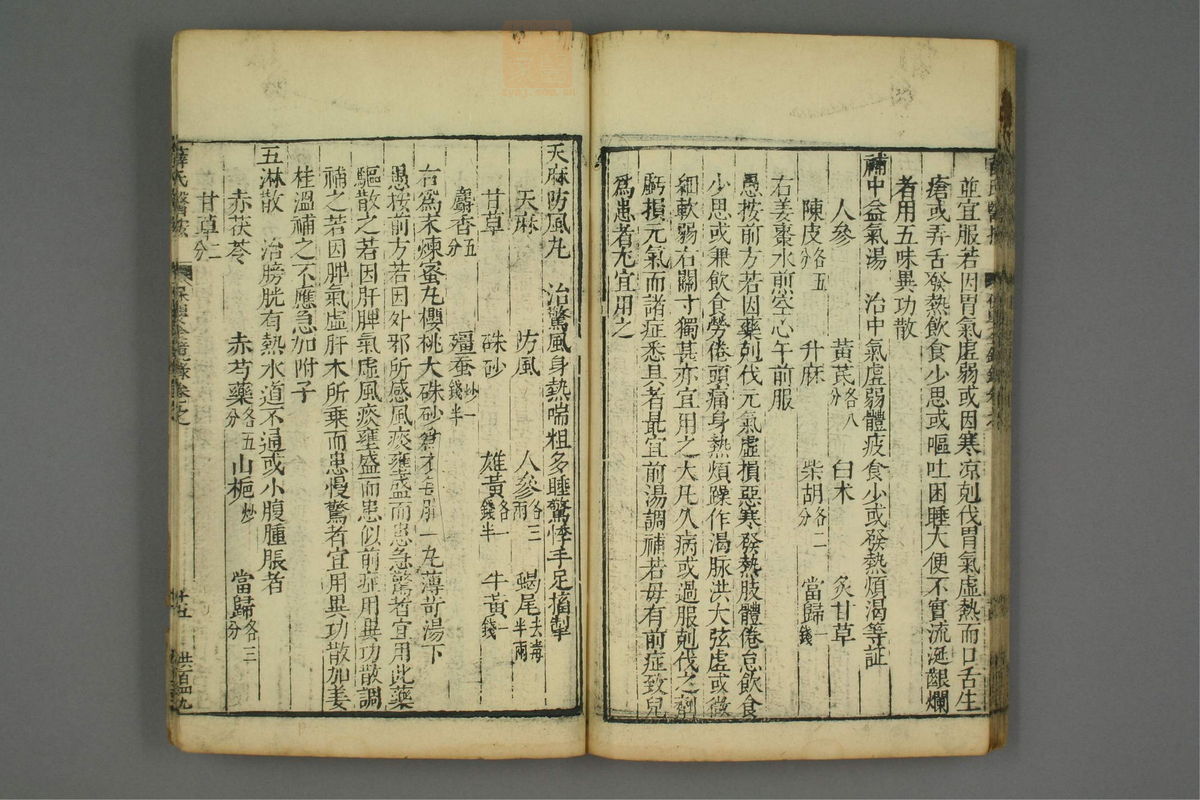 並宜服若因胃氣虛弱或因寒凉剋伐胃氣虛熱而口舌生
瘡或弄舌發熱飲食少思或嘔吐困睡大便不實流涎齦爛
者用五味異功散
補中益氣湯 治中氣虛弱體疲食少或發熱煩渴等証
人參 黃芪各八分 白朮 炙甘草
陳皮各五分 升麻 柴胡各二分 當歸一錢
右姜棗水煎空心午前服
愚按前方若因藥剋伐元氣虛損惡寒發熱肢體倦怠飲食
少思或兼飲食勞倦頭痛身熱煩躁作渴脉洪大弦虛或微
細軟弱右關寸獨甚亦宜用之大凡久病或過服剋伐之劑
虧損元氣而諸症悉具者最宜前湯調補若毋有前症致兒
爲患者尤宜用之
天麻防風丸 治驚風身熱喘粗多睡驚悸手足搐掣
天麻 防風 人參各三兩 蝎尾去毒半兩
甘草 硃砂 雄黃各一錢半 牛黃一錢
麝香五分 殭蚕炒一錢半
右爲末煉蜜丸櫻桃大硃砂爲衣每服一丸薄苛湯下
愚按前方若因外邪所感風痰壅盛而患急驚者宜用此藥
驅散之若因肝脾氣虛風痰壅盛而患似前症用異功散調
補之若因脾氣虛肝木所乘而患慢驚者宜用異功散加姜
桂溫補之不應急加附子
五淋散 治膀胱有熱水道不通或小腹腫脹者
赤茯苓 赤芍藥各五分 山梔炒 當歸各三分
甘草二分
薛氏醫 十五 共百四九